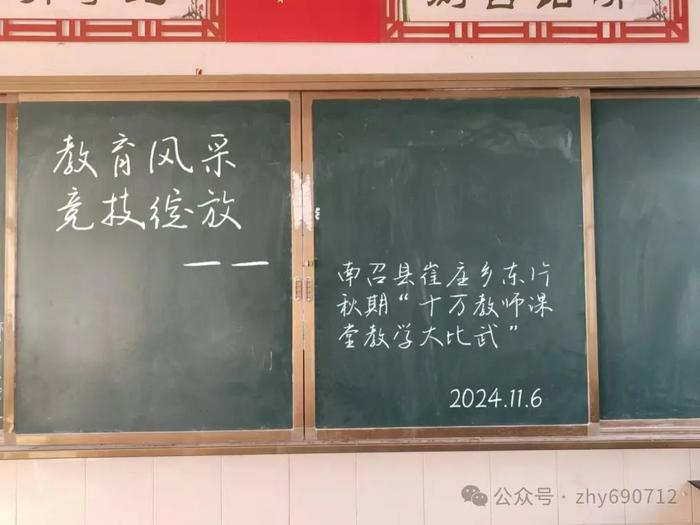 教育风采
竞技绽放
——
南召县崔庄乡东片
秋期“十万教师课
堂教学大比武”
2024.11.6
公众号·zhy690712